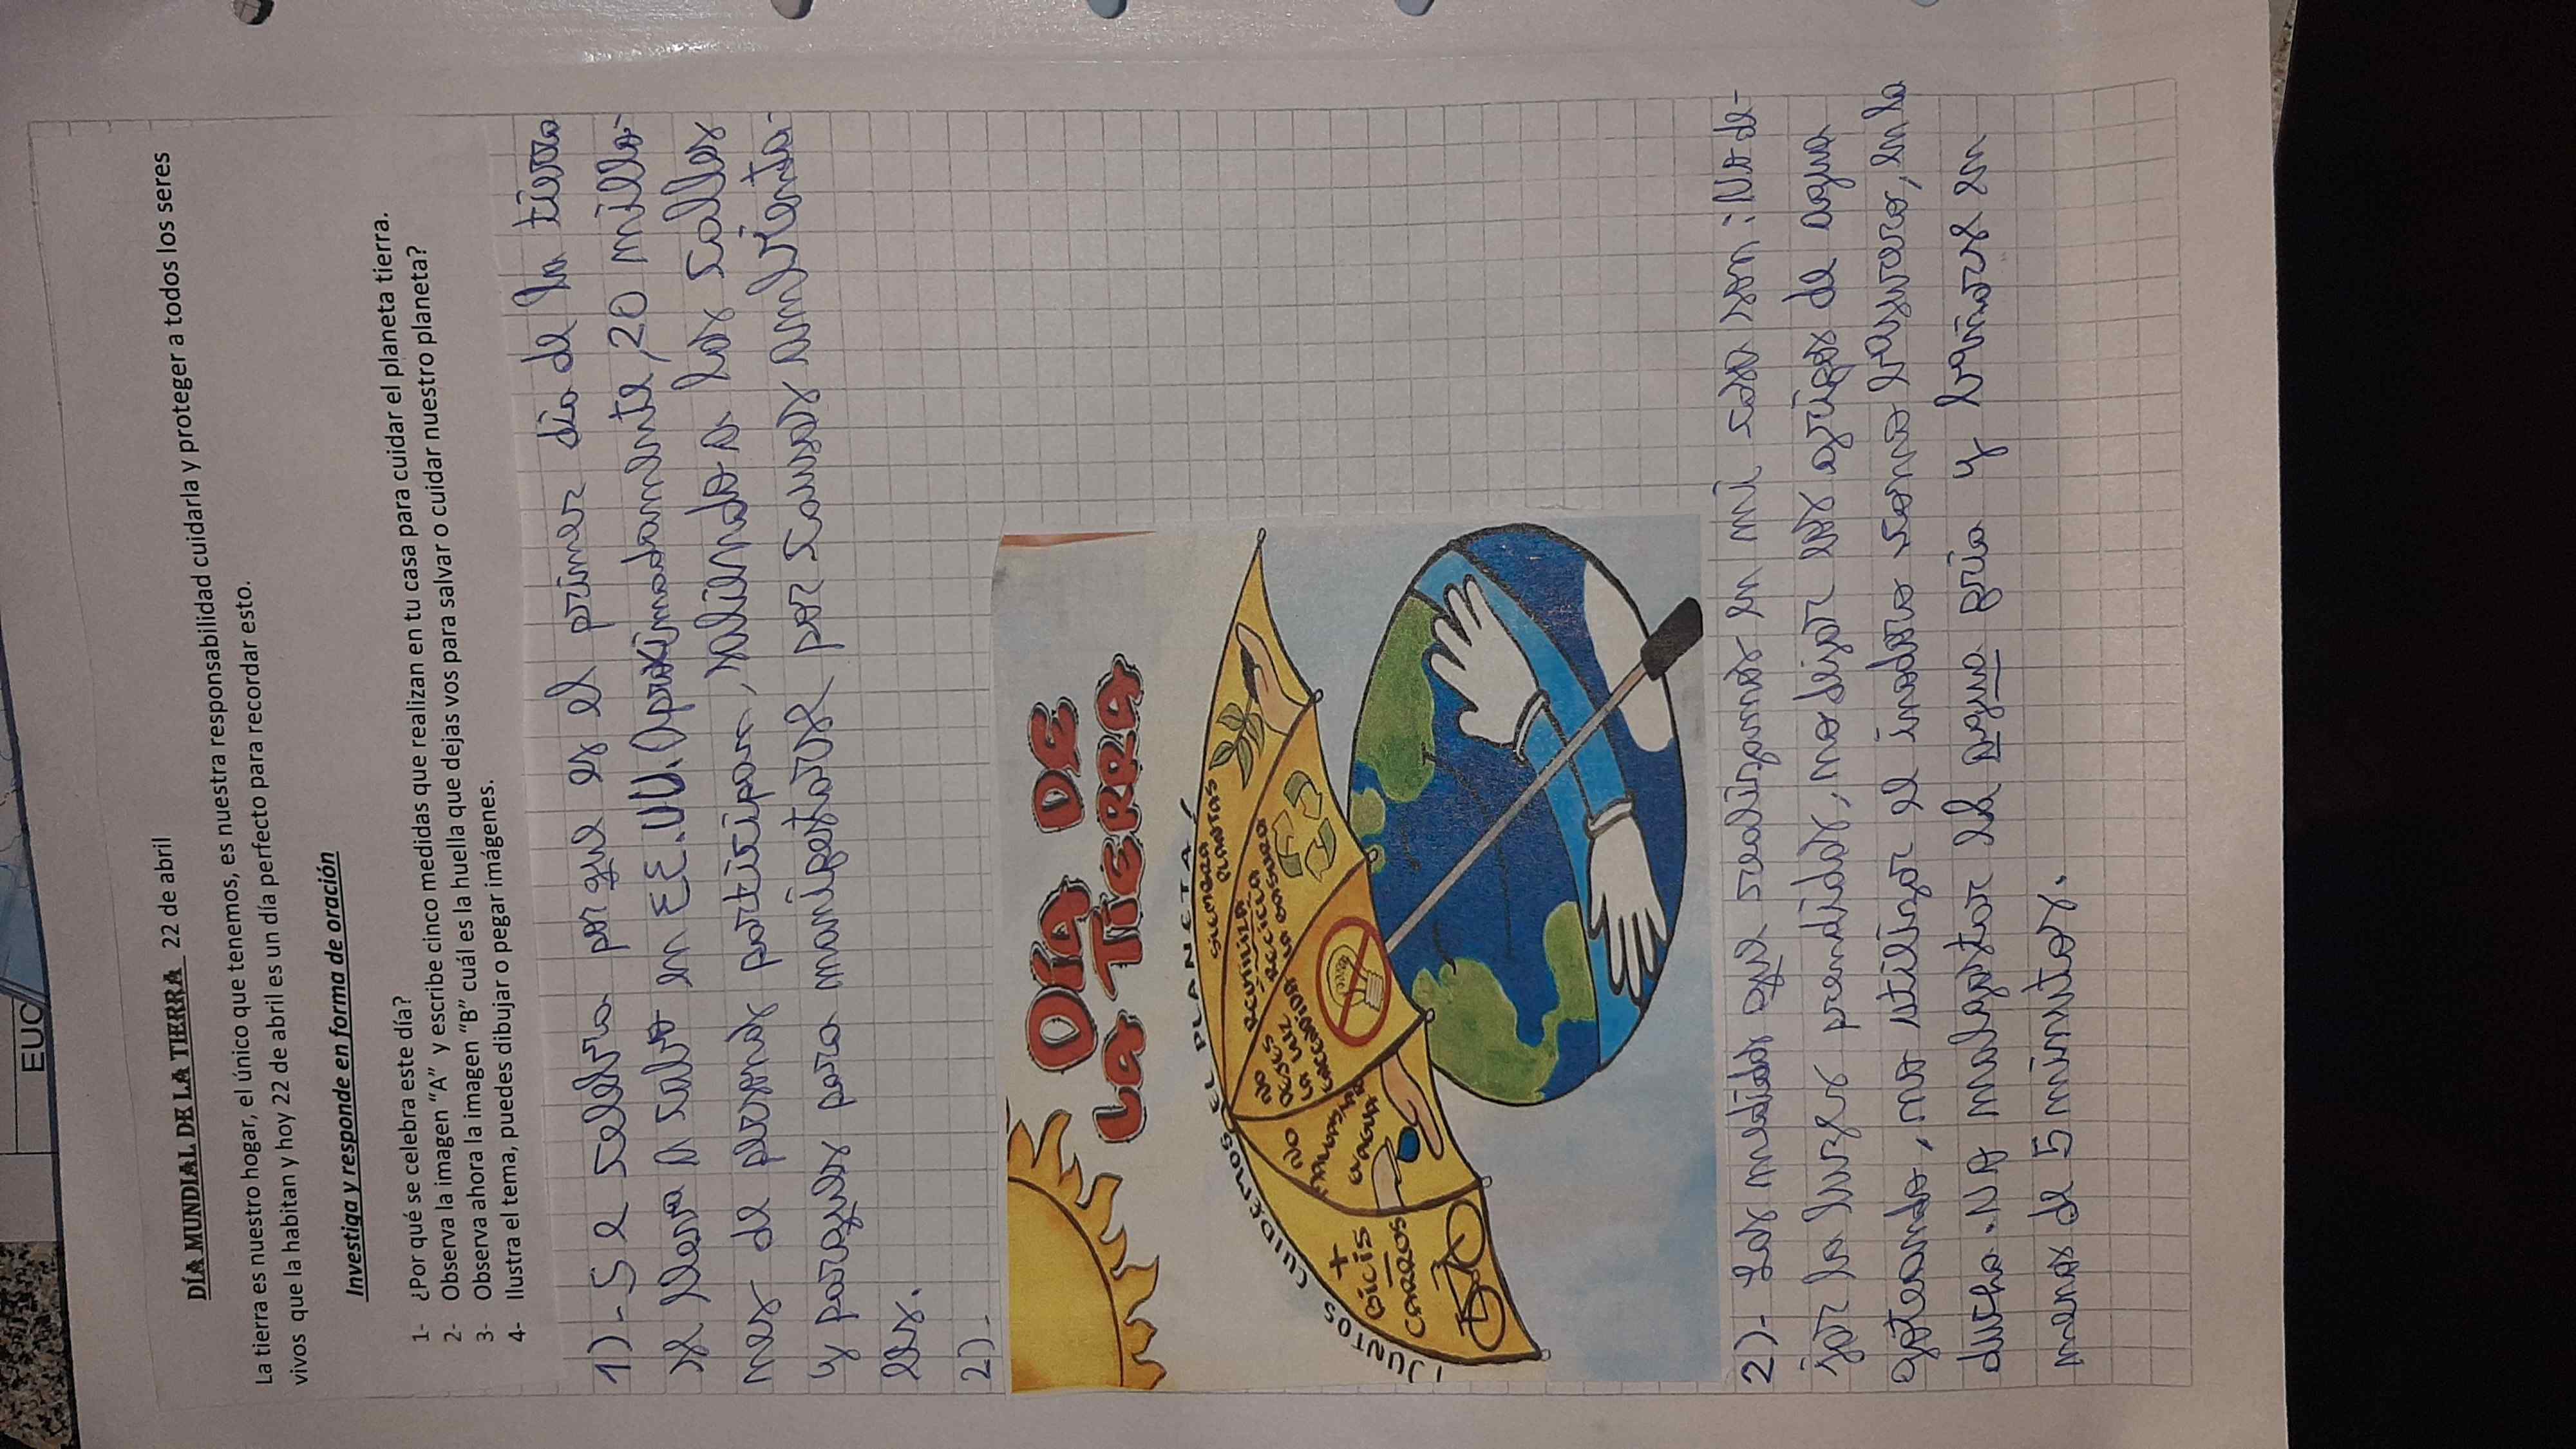 EUC
DÍA MUNDIAL DE LA TIERRA 22 de abril
La tierra es nuestro hogar, el único que tenemos, es nuestra responsabilidad cuidarla y proteger a todos los seres
vivos que la habitan y hoy 22 de abril es un día perfecto para recordar esto.
Investiga y responde en forma de oración
1- ¿Por qué se celebra este día?
2- Observa la imagen "A" y escribe cinco medidas que realizan en tu casa para cuidar el planeta tierra.
3- Observa ahora la imagen "B" cuál es la huella que dejas vos para salvar o cuidar nuestro planeta?
4- Ilustra el tema, puedes dibujar o pegar imágenes.
1)- Se celebra por que es el primer día de la tierra
se lleva a cabo en EE.UU. Aproximadamente, 20 millo-
nes de personas participan, saliendo a las calles
y parques para manifestarse por causas ambienta-
les.
2)-
DÍA DE
LA TIERRA
¡JUNTOS CUIDEMOS EL PLANETA!
+
BICIS
-
CARROS
NO
AGUA
NO
DEJES
LA LUZ
ENCENDIDA
REUTILIZA
RECICLA
LA BASURA
SIEMBRA
PLANTAS
2)- Las medidas que realizamos en mi casa son: No de-
jar la luces prendidas, no dejar los grifos de agua
goteando, no utilizar el inodoro como basurero, en la
ducha. No malgastar la agua fria y bañarse en
menos de 5 minutos.